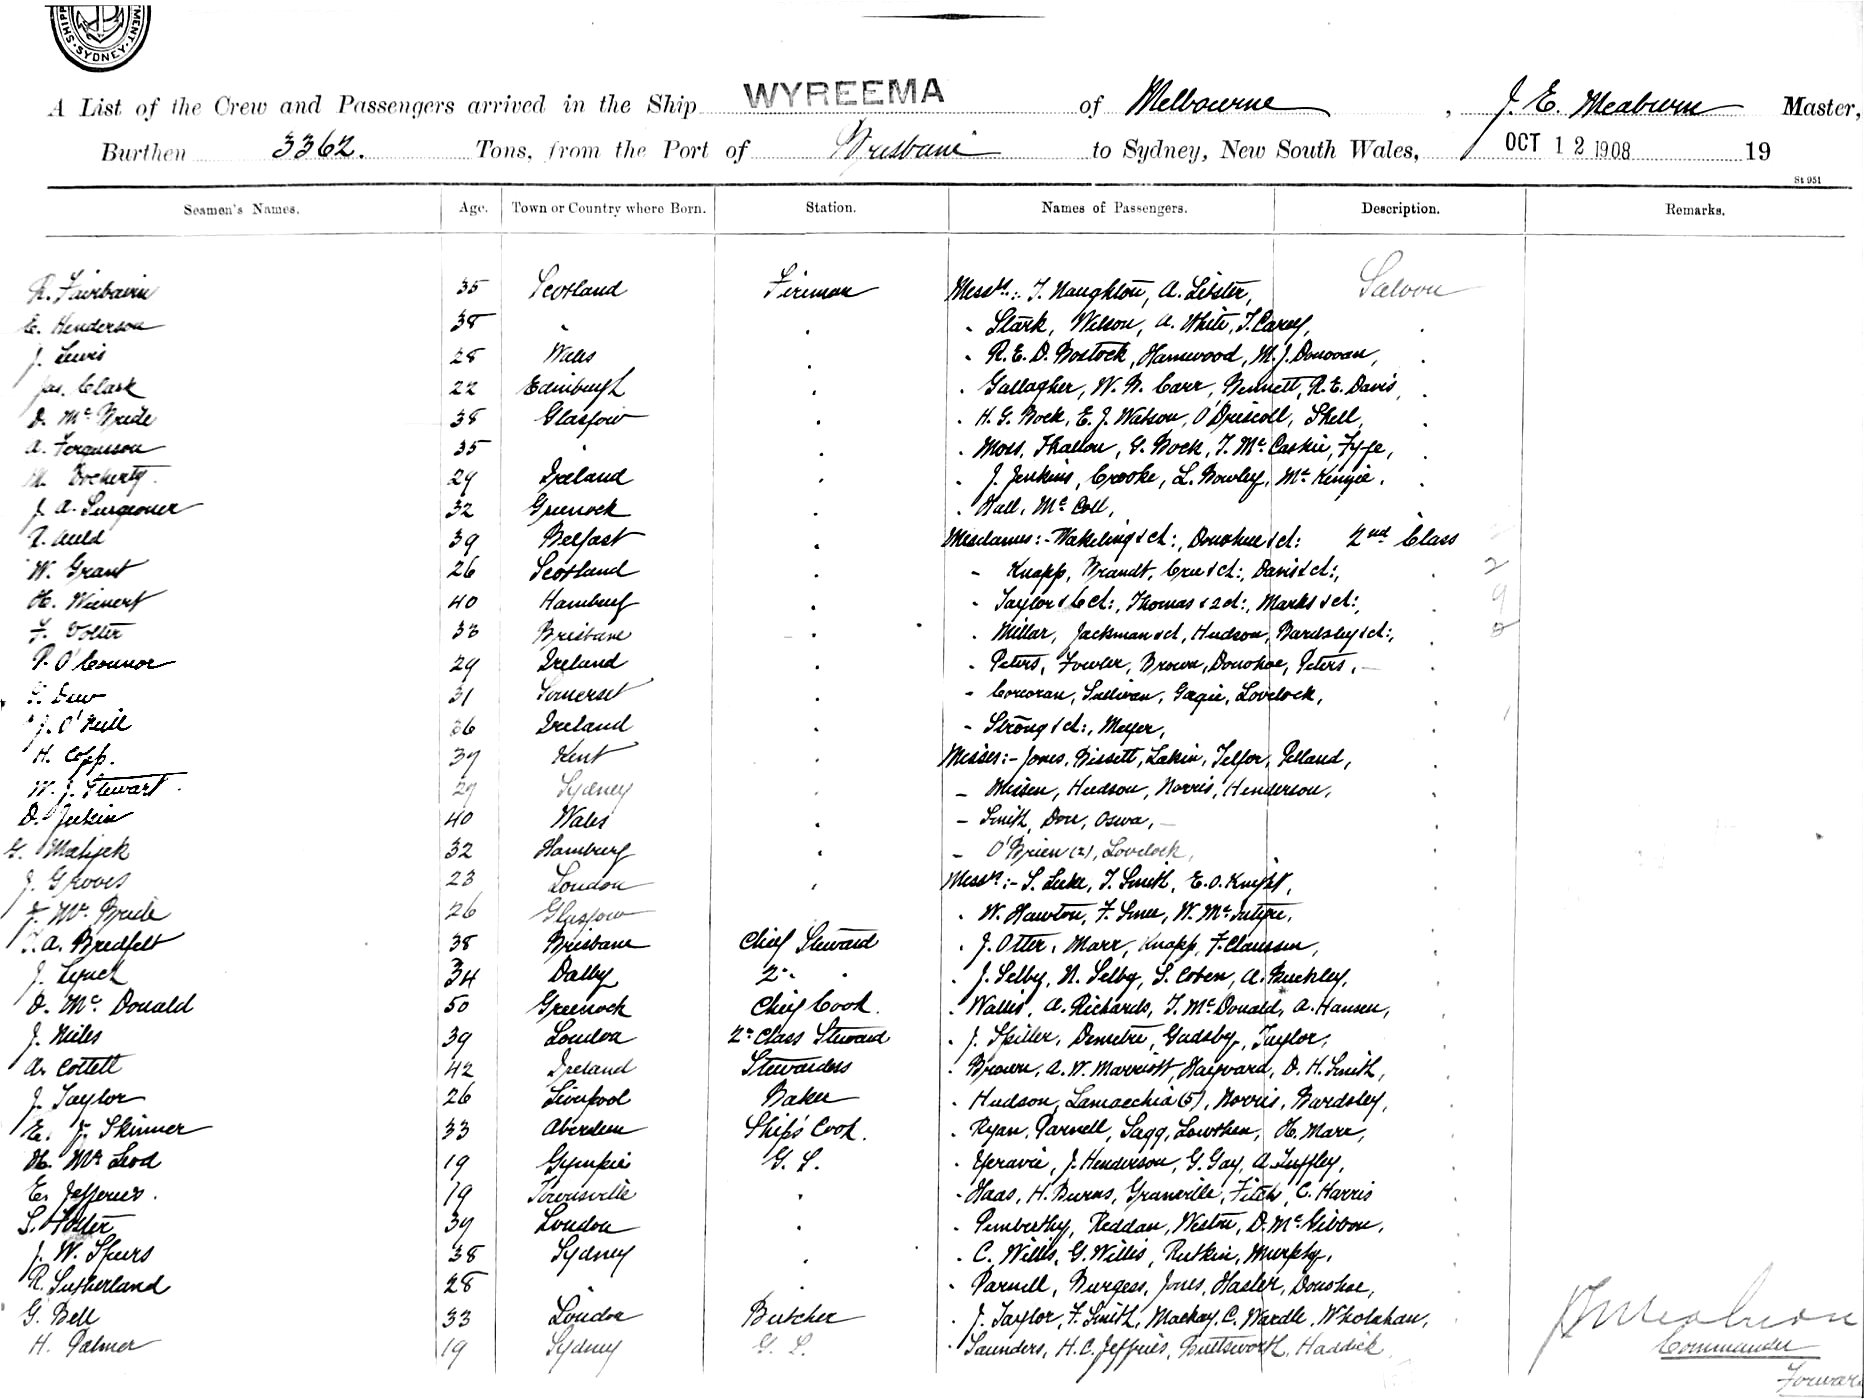 SHIP MENT. SYDNEY.
A List of the Crew and Passengers arrived in the Ship WYREEMA of Melbourne, J. E. Meaburn Master,
Burthen 3362. Tons, from the Port of Brisbane to Sydney, New South Wales, OCT 12 1908 19
St 951
Seamen's Names. Age. Town or Country where Born. Station. Names of Passengers. Description. Remarks.
R. Fairbairn 35 Scotland Fireman Messrs:- T. Naughton, A. Lister, Saloon
E. Henderson 38 " . - Stark, Wilson, A. White, T. Carey, .
J. Lewis 28 Wales . - R. E. D. Bostock, Hamwood, M. J. Donovan, .
Jas. Clark 22 Edinburgh . . Gallagher, W. B. Carr, Bennett, R. E. Davis, .
D. McBride 38 Glasgow . . H. G. Bock, E. J. Watson, O'Driscoll, Shell, .
A. Fergusson 35 . . . Moss, Thallon, G. Bock, T. McCaskie, Fyfe, .
M. Docherty. 29 Ireland . . J. Jenkins, Crooke, L. Bowley, McKenzie. .
J. A. Surgeoner 32 Greenock . . Hall, McColl,
R. Auld 39 Belfast . Mesdames:- Wakeling & ch:, Donohue & ch: 2nd Class
W. Grant 26 Scotland . - Knapp, Brandt, Crue & ch:, Davis & ch:, . 2
H. Wienert 40 Hamburg . - Taylor & 6 ch:, Thomas & 2 ch:, Marks & ch:, . 9
F. Volter 33 Brisbane . . Millar, Jackman & ch, Hudson, Bardsley & ch:, . 2
P. O'Connor 29 Ireland . . Peters, Fowler, Brown, Donohoe, Peters, .
Dew 31 Somerset . - Corcoran, Sullivan, Gagie, Lovelock, .
J. O'Neill 36 Ireland . - Strong & ch:, Meyer, .
H. Copp. 39 Kent . Misses:- Jones, Bissett, Lakin, Telfor, Pelland, .
W. J. Stewart. 29 Sydney . - Missen, Hudson, Norris, Henderson, .
D. Jenkin 40 Wales . - Smith, Dore, Oswa, .
Matijek 32 Hamburg . - O'Brien (2), Lovelock, .
J. Groves 23 London . Messrs:- S. Luke, T. Smith, E. O. Knight, .
F. McBride 26 Glasgow . W. Hawton, F. Smee, W. McIntyre, .
T. A. Bredfelt 38 Brisbane Chief Steward . J. Otter, Marr, Knapp, F. Claussen, .
J. Lynch 34 Dalby 2" " . J. Selby, N. Selby, S. Coben, A. Buckley, .
D. McDonald 50 Greenock Chief Cook. . Wallis, A. Richards, T. McDonald, A. Hansen, .
J. Niles 39 London 2" Class Steward . J. Spiller, Demetre, Gadsby, Taylor, .
A. Collett 42 Ireland Stewardess . Brown, A. W. Marriott, Hayward, D. H. Smith, .
J. Taylor 26 Liverpool Baker . Hudson, Lamacchia (5), Norris, Bardsley, .
E. J. Skinner 33 Aberdeen Ship's Cook. . Ryan, Parnell, Sagg, Lowthen, H. Marr, .
H. McLeod 19 Gympie G. S. . J. Henderson, G. Gay, A. Tuffley, .
E. Jefferies. 19 Townsville . - Haas, H. Burns, Granville, Fitch, C. Harris .
S. Foster 39 London . . Pemberthy, Reddan, Weston, D. McGibbon, .
J. W. Spurs 38 Sydney . . C. Willis, G. Willis, Rutkin, Murphy, .
R. Sutherland 28 . . . Parnell, Burgess, Jones, Hasler, Donohoe, .
G. Bell 33 London Butcher . J. Taylor, F. Smith, Mackay, C. Wardle, Wholahan, .
H. Palmer 19 Sydney G. S. . Saunders, H. C. Jeffries, Buttsworth, Haddick
J E Meaburn
Commander
Forward